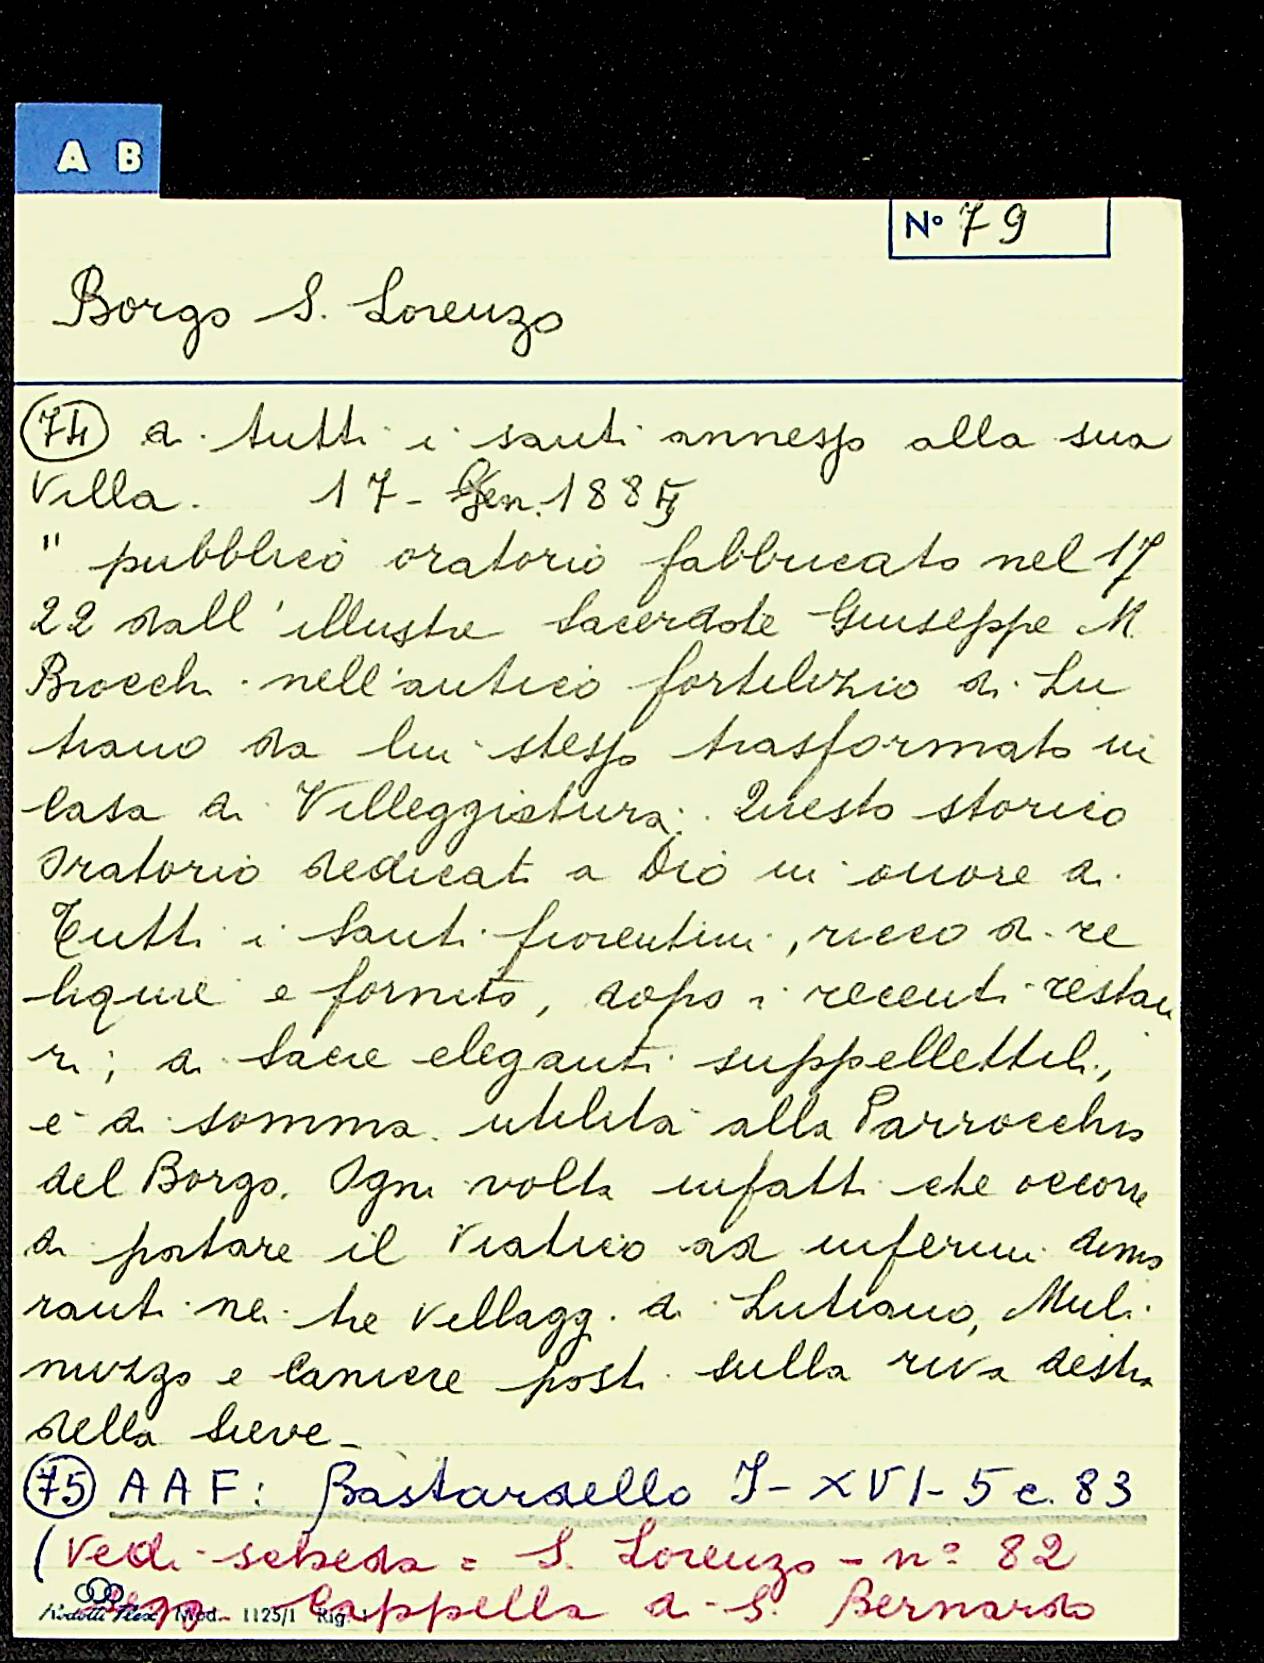 A B
N° 79
Borgo S. Lorenzo
74 a tutti i santi annesso alla sua
Villa. 17 - Gen. 188
" pubblico oratorio fabbricato nel 17
22 dall'illustre Sacerdote Giuseppe M.
Brocchi nell'antico fortilizio di Lu
tiano da lui stesso trasformato in
Casa di Villeggiatura. Questo storico
Oratorio dedicati a Dio in onore di
Tutti i Santi fiorentini, ricco di re
liquie e fornito, dopo i recenti restau
ri; di Sacre eleganti suppellettili,
è di somma utilità alla Parrocchia
del Borgo. Ogni volta infatti che occorre
di portare il Viatico ad infermi dimo
ranti nei tre Villaggi di Lutiano, Muli
nuzzo e Caniere posti sulla riva destra
della Sieve -
75 AAF: Bastardello I - XVI - 5 c. 83
(Vedi scheda = S. Lorenzo - n° 82
Cappella di S. Bernardo
Mod. 1125/1 Rig.